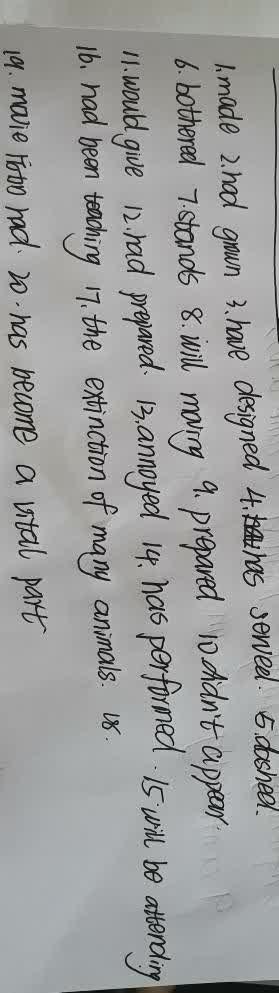 1. made 2. had grown 3. have designed 4. has served. 5. dashed.
6. bothered 7. stands 8. will marry 9. prepared 10 didn't appear.
11. would give 12. had prepared. 13. annoyed 14. has performed. 15 will be attending
16. had been teaching 17. the extinction of many animals. 18.
19. movie had. 20. has become a part